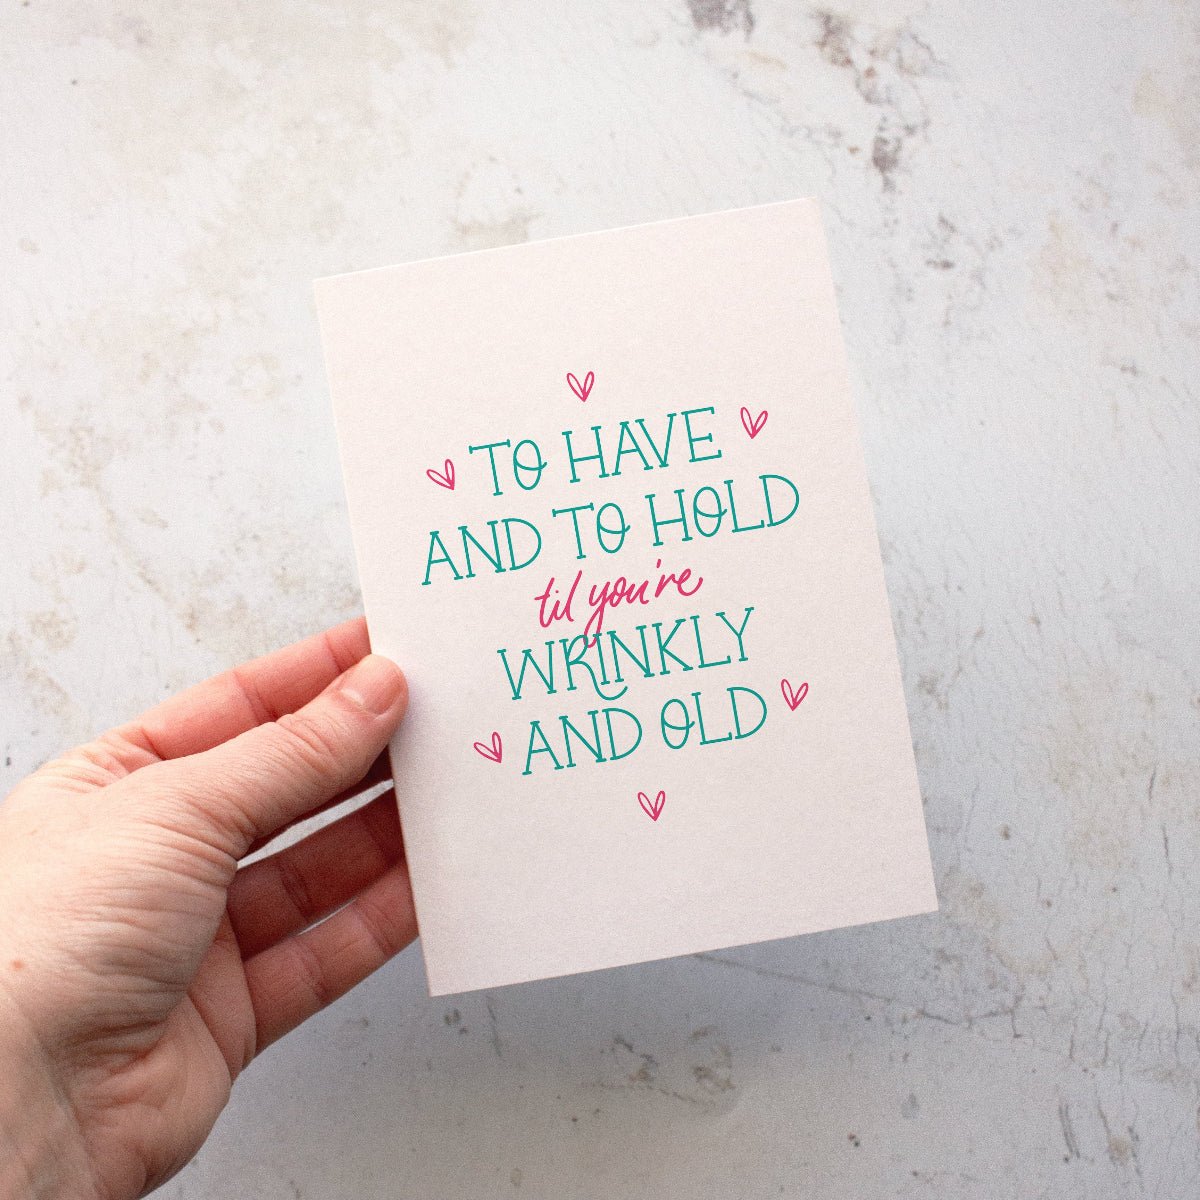 TO HAVE
AND TO HOLD
til you're
WRINKLY
AND OLD